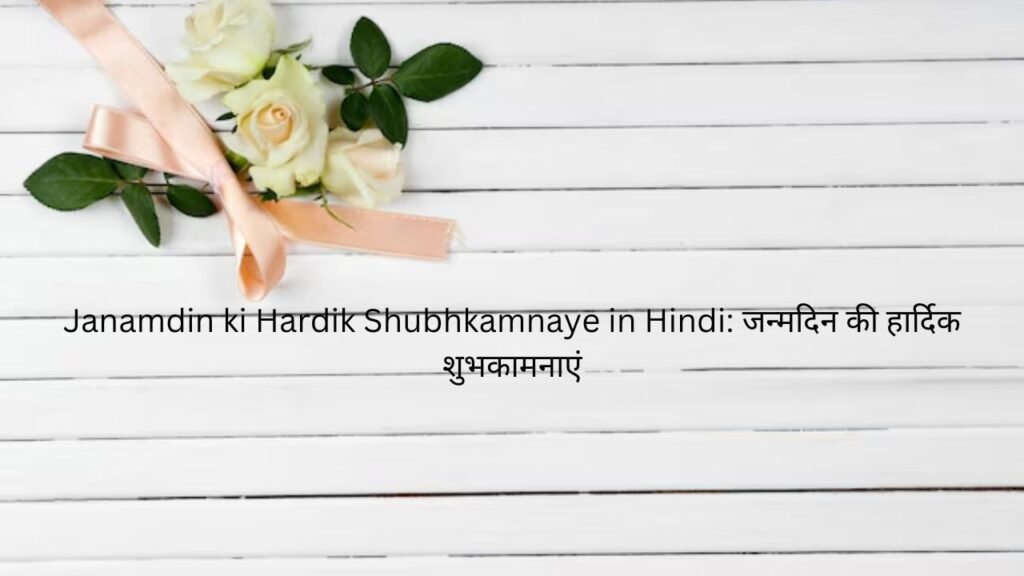 Janamdin ki Hardik Shubhkamnaye in Hindi: जन्मदिन की हार्दिक
शुभकामनाएं